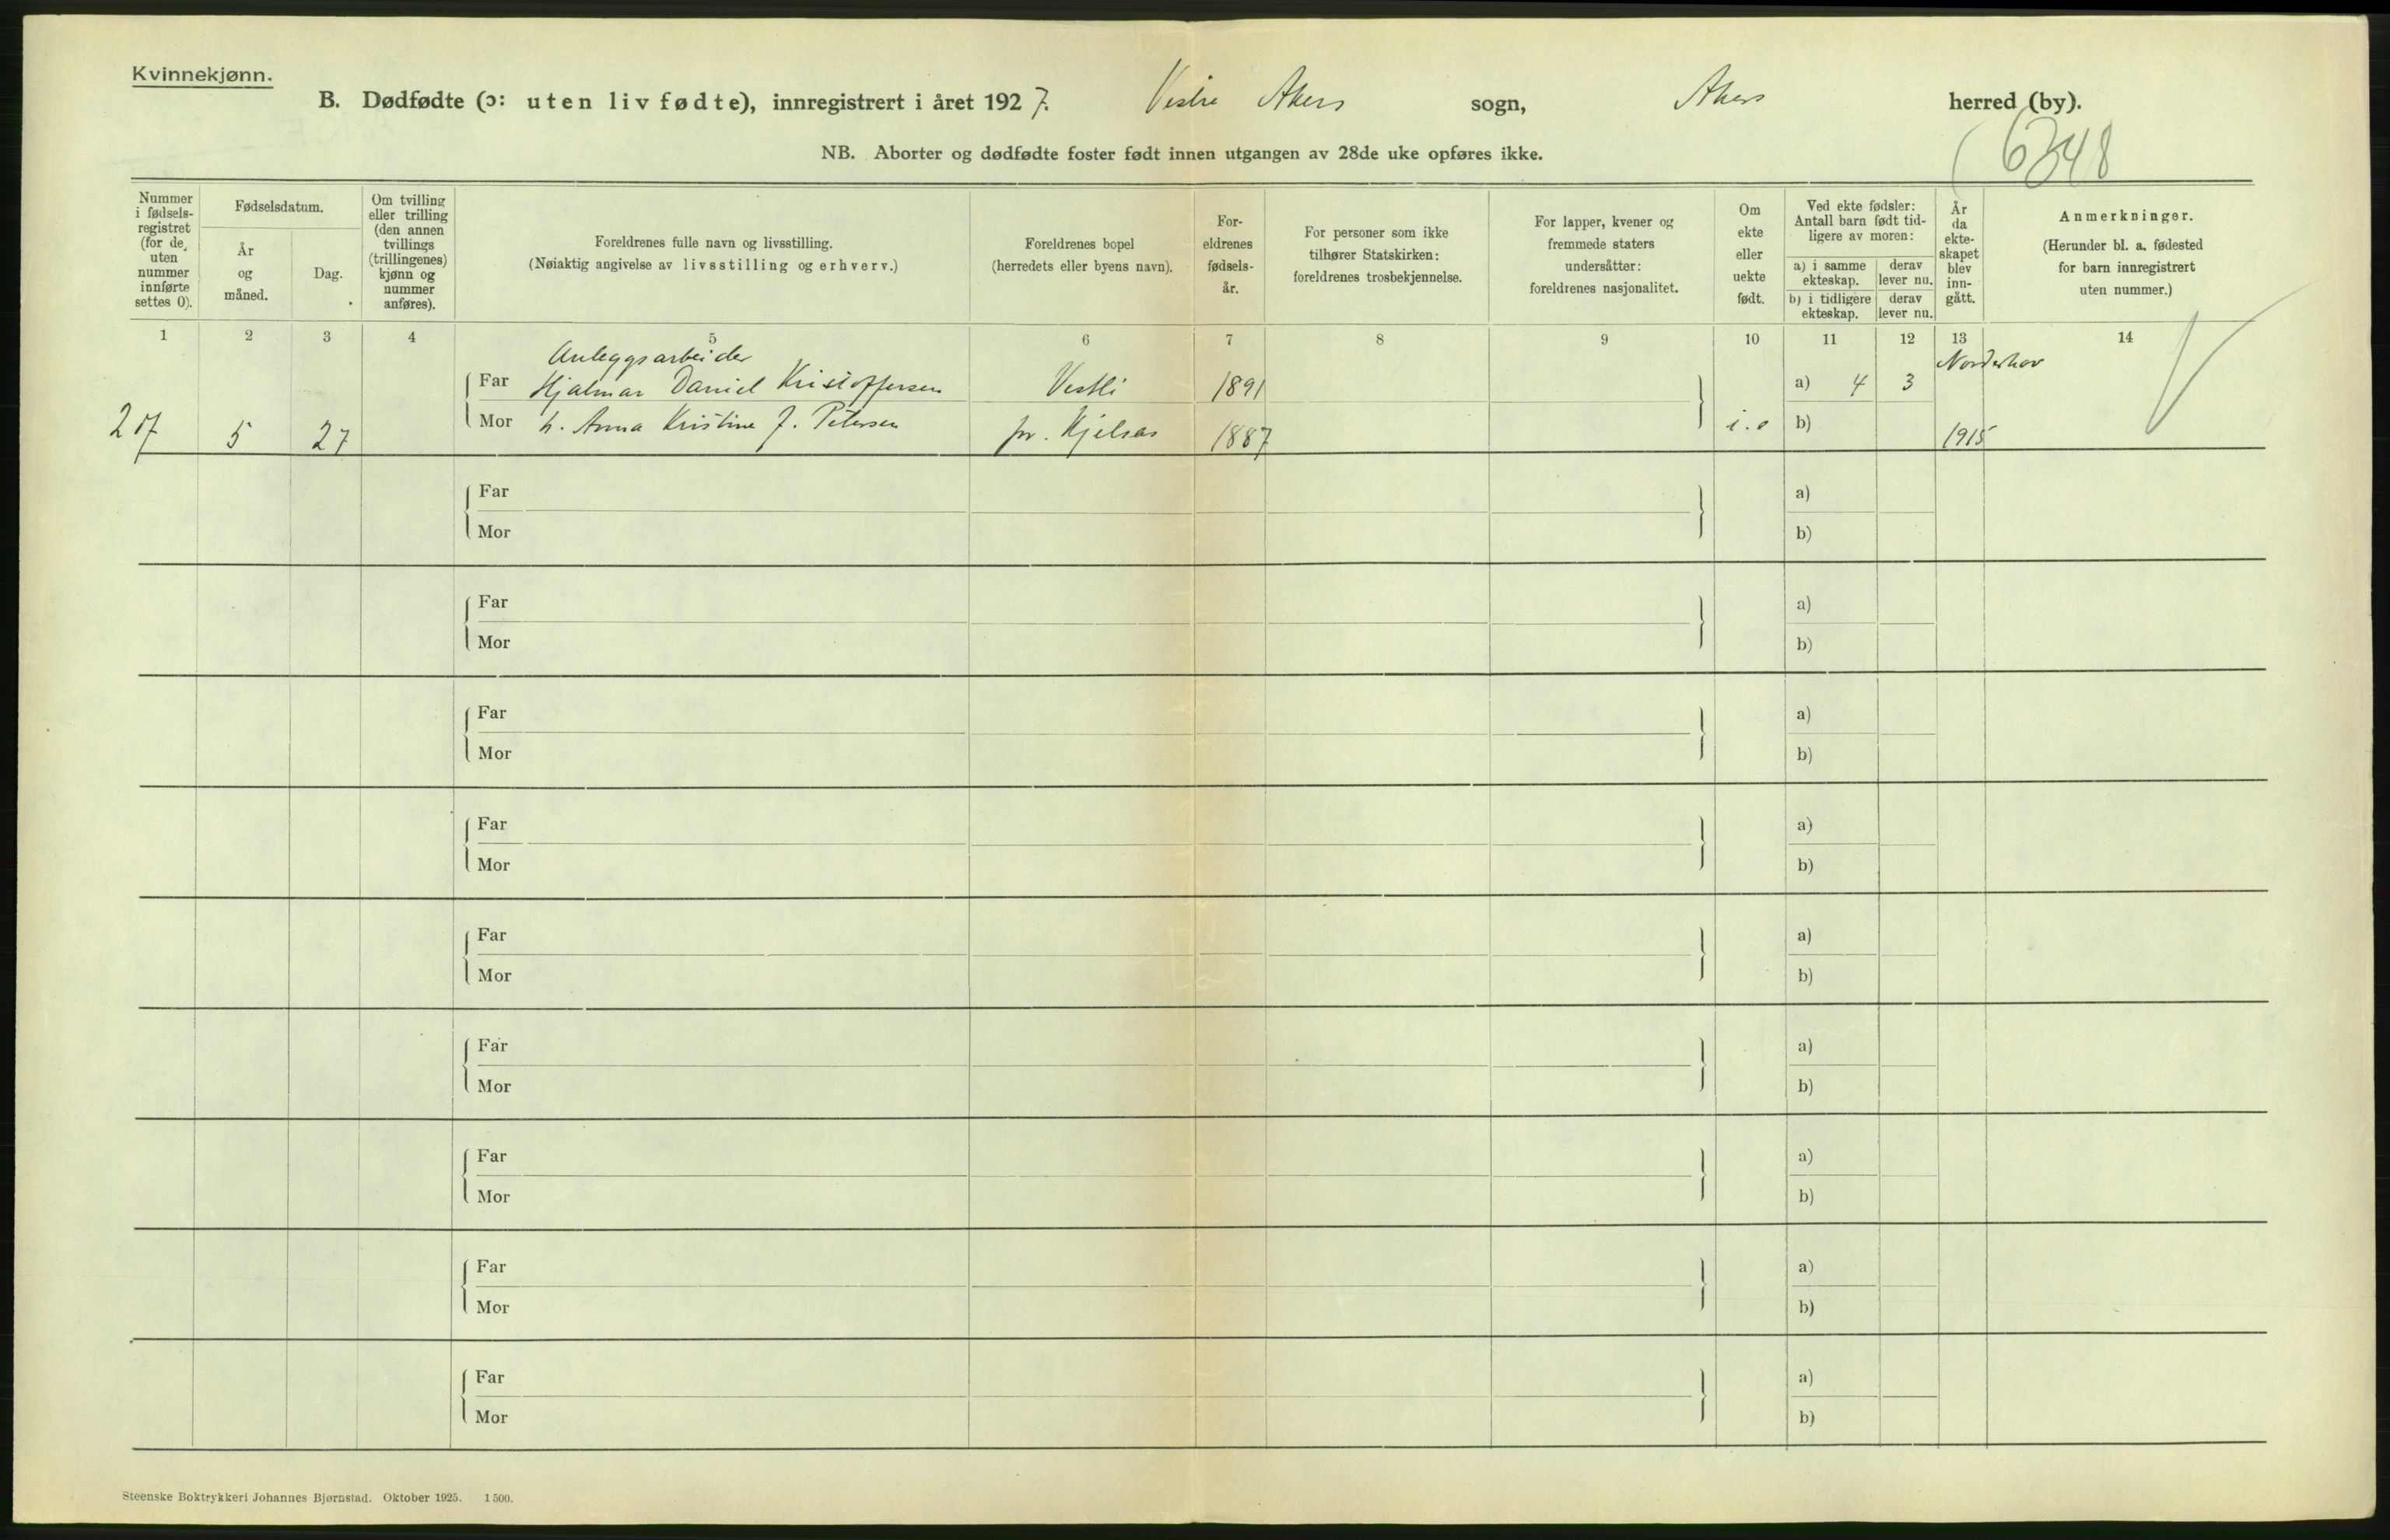 Kvinnekjønn.
B. Dødfødte (ɔ: uten liv fødte), innregistrert i året 1927. Vestre Akers sogn, Akers herred (by).
NB. Aborter og dødfødte foster født innen utgangen av 28de uke opføres ikke.
Nummer i fødsels-registret (for de uten nummer innførte settes 0).
Fødselsdatum.
År og måned.
Dag.
Om tvilling eller trilling (den annen tvillings (trillingenes) kjønn og nummer anføres).
Foreldrenes fulle navn og livsstilling.
(Nøiaktig angivelse av livsstilling og erhverv.)
Foreldrenes bopel
(herredets eller byens navn).
For-eldrenes fødsels-år.
For personer som ikke tilhører Statskirken: foreldrenes trosbekjennelse.
For lapper, kvener og fremmede staters undersåtter: foreldrenes nasjonalitet.
Om ekte eller uekte født.
Ved ekte fødsler: Antall barn født tid-ligere av moren:
a) i samme ekteskap.
derav lever nu.
b) i tidligere ekteskap.
derav lever nu.
År da ekte-skapet blev inn-gått.
Anmerkninger.
(Herunder bl. a. fødested for barn innregistrert uten nummer.)
1 2 3 4 5 6 7 8 9 10 11 12 13 14
Anleggsarbeider
Norderhov
Far Hjalmar Daniel Kristoffersen Vestli 1891 a) 4 3
5 27 Mor h. Anna Kristine f. Petersen pr. Kjelsås 1887 b) 1915
Far a)
Mor b)
Far a)
Mor b)
Far a)
Mor b)
Far a)
Mor b)
Far a)
Mor b)
Far a)
Mor b)
Far a)
Mor b)
Far a)
Mor b)
Far a)
Mor b)
Steenske Boktrykkeri Johannes Bjørnstad. Oktober 1925. 1500.